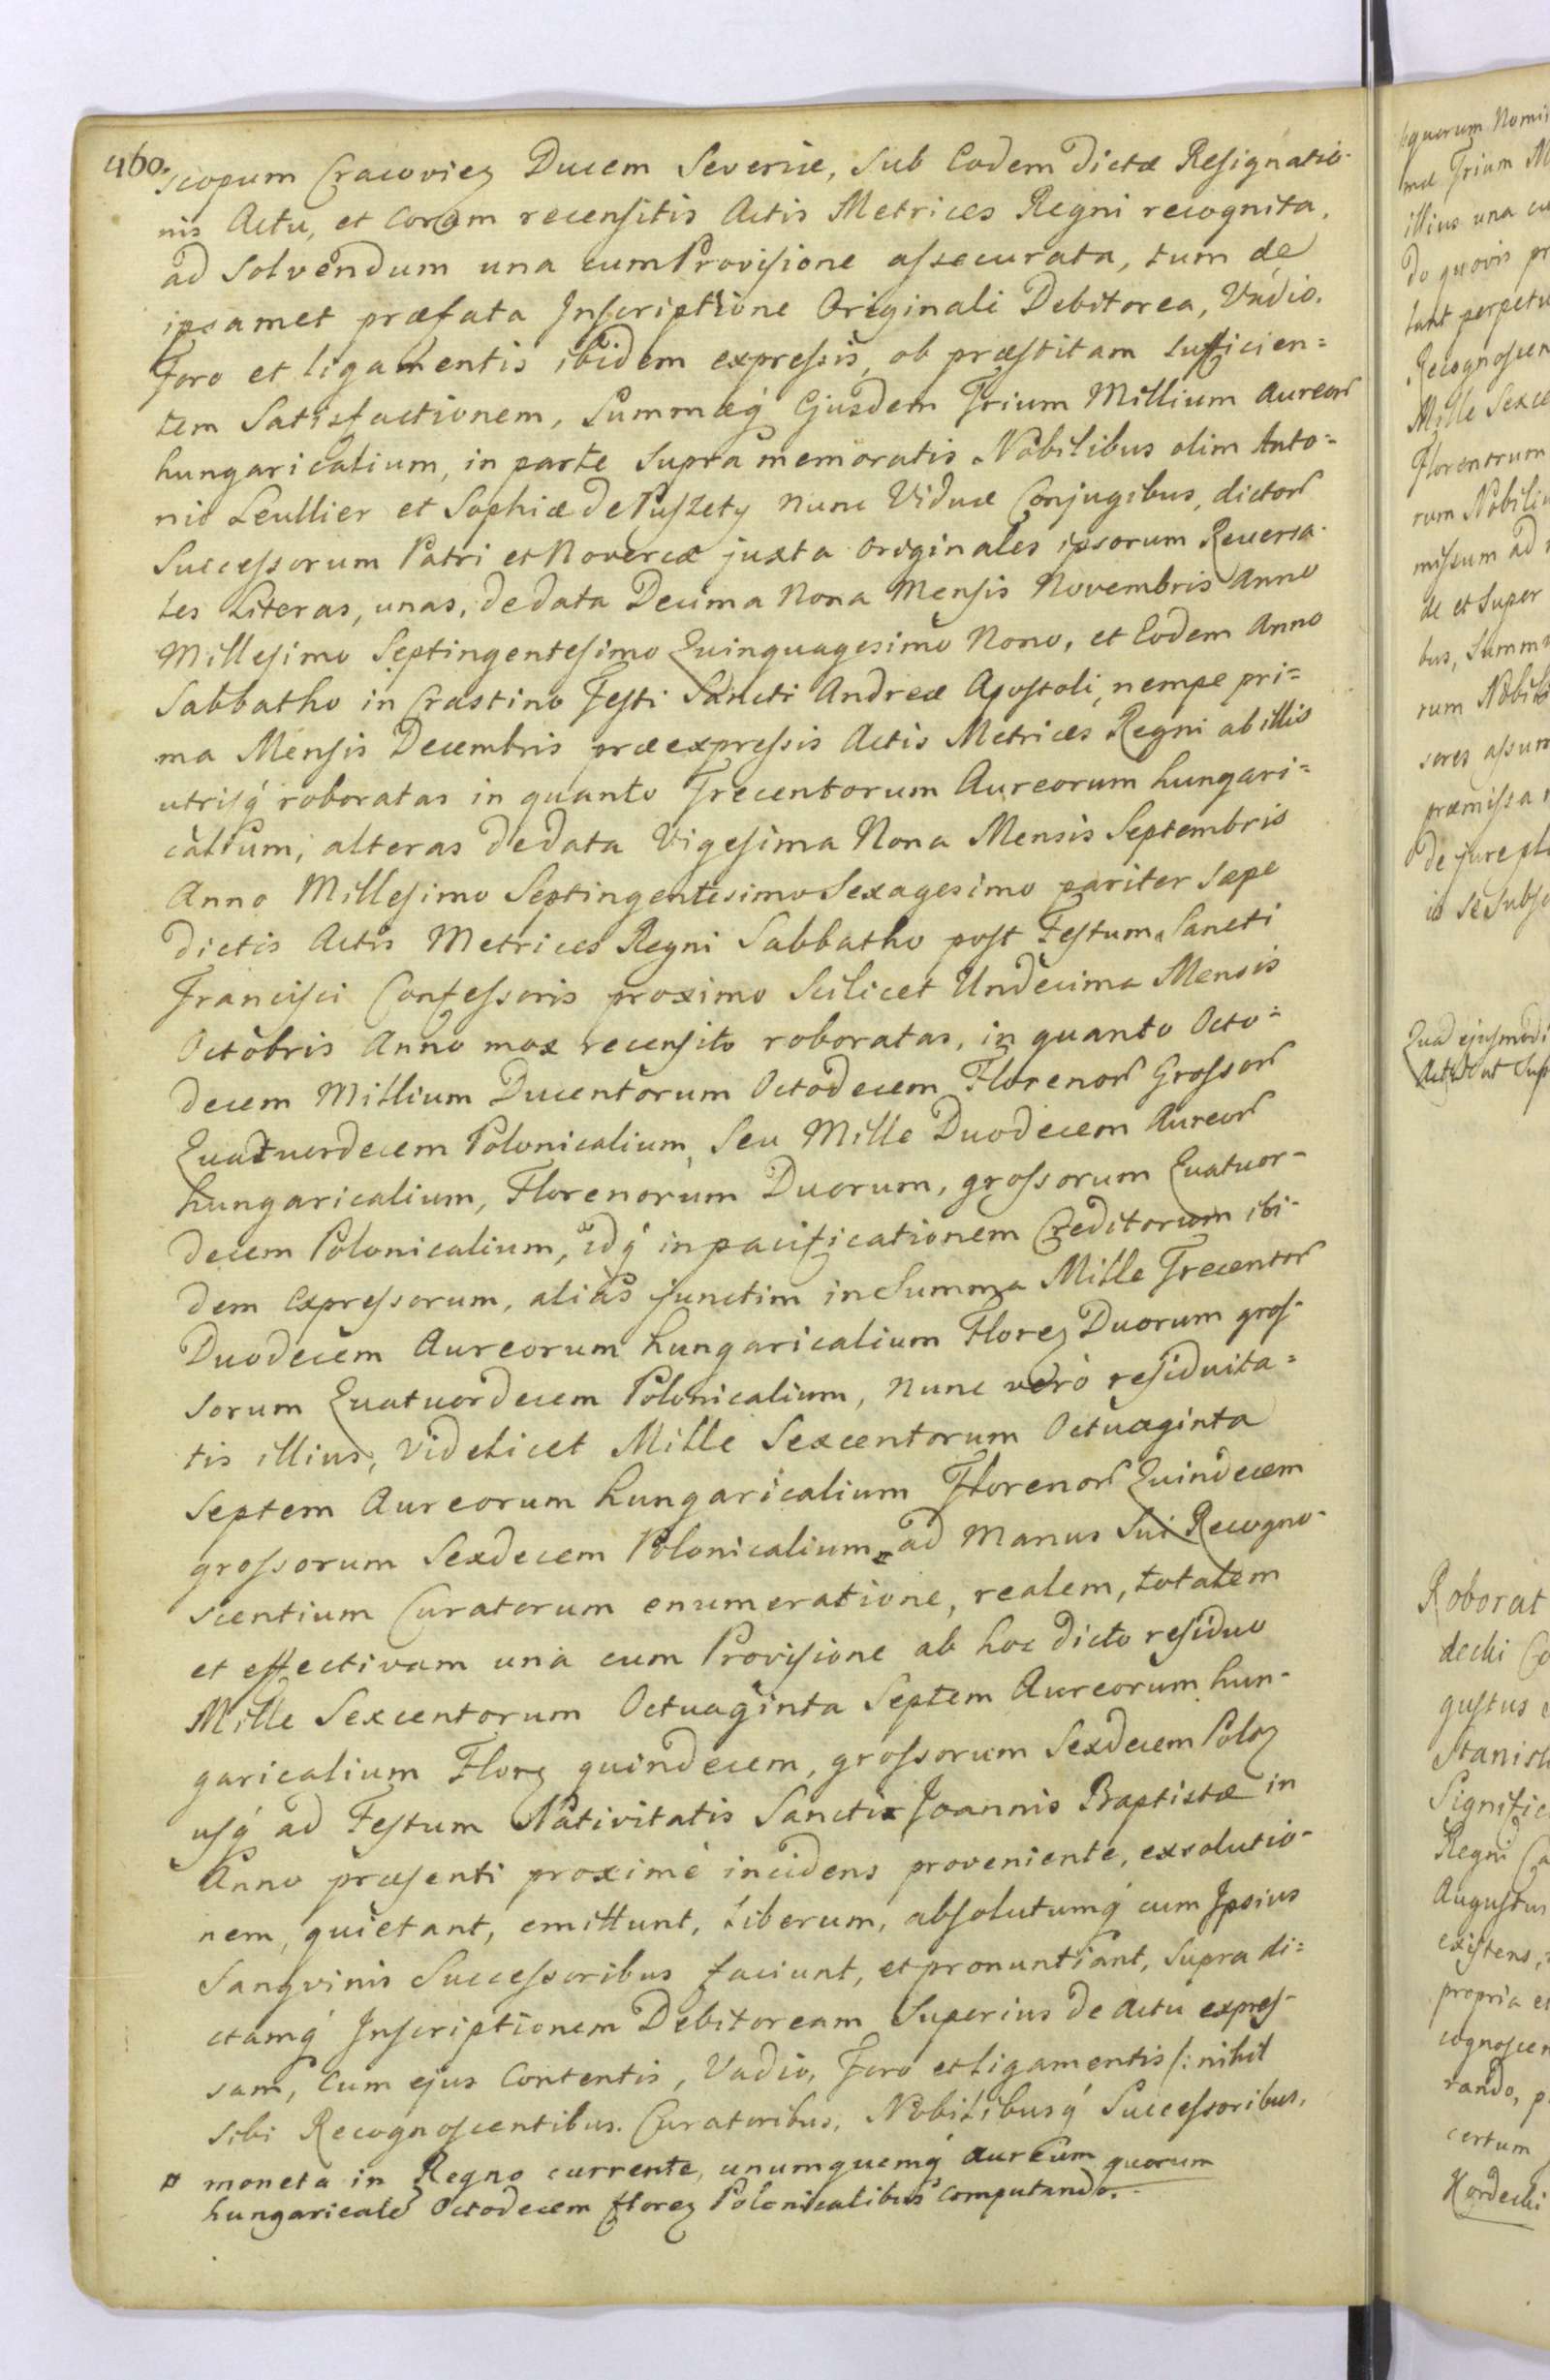 460.
scopum Cracovien Ducem Severiæ, Sub Eodem dictæ Resignatio-
nis Actu, et Coram recensitis Actis Metrices Regni recognita,
ad Solvendum una cum Provisione assecurata, tum de
ipsamet præfata Inscriptione Originali Debitorea, Vadio,
Foro et ligamentis ibidem expressis, ob præstitam Sufficien=
tem Satisfactionem, Summæq́ Ejusdem Trium Millium Aureor
hungaricalium, in parte Supra memoratis Nobilibus olim Anto=
nio Leullier et Sophiæ de Puszety nunc Viduæ Conjugibus, dictor
Successorum Patri et Novercæ juxta Originales ipsorum Reversa-
les Literas, unas, de data Decima Nona Mensis Novembris Anno
Millesimo Septingentesimo Quinquagesimo Nono, et Eodem Anno
Sabbatho in Crastino Festi Sancti Andreæ Apostoli, nempe pri=
ma Mensis Decembris præexpressis Actis Metrices Regni ab illis
utrisq́ roboratas in quanto Trecentorum Aureorum hungari=
calium, alteras de data Vigesima Nona Mensis Septembris
Anno Millesimo Septingentesimo Sexagesimo pariter sæpe
dictis Actis Metrices Regni Sabbatho post Festum Sancti
Francisci Confessoris proximo Scilicet Undecima Mensis
Octobris Anno mox recensito roboratas, in quanto Octo=
decem Millium Ducentorum Octodecem Florenor Grossor
Quatuordecem Polonicalium, Seu Mille Duodecem Aureor
hungaricalium, Florenorum Duorum, grossorum Quatuor-
decem Polonicalium, idq́ in pacificationem Creditorum ibi-
dem Expressorum, alias junctim in Summa Mille Trecentor
Duodecem Aureorum hungaricalium Floren Duorum gros-
sorum Quatuordecem Polonicalium, Nunc verò residuita=
tis illius, videlicet Mille Sexcentorum Octuaginta
Septem Aureorum hungaricalium Florenor Quindecem
grossorum Sexdecem Polonicalium ¤ ad Manus Sui Recogno-
scentium Curatorum enumeratione, realem, totalem
et effectivam unà cum Provisione ab hoc dicto residuo
Mille Sexcentorum Octuaginta Septem Aureorum hun-
garicalium Floren quindecem, grossorum Sexdecem Polon
usq́ ad Festum Nativitatis Sancti Joannis Baptistæ in
Anno præsenti proximè incidens proveniente, exsolutio-
nem, quietant, emittunt, Liberum, absolutumq́ cum Ipsius
Sangvinis Successoribus faciunt, et pronuntiant, Supra di=
ctamq́ Inscriptionem Debitoream Superius de Actu expres-
sam, Cum ejus Contentis, Vadio, Foro et ligamentis /: nihil
sibi Recognoscentibus Curatoribus, Nobilibusq́ Successoribus,
¤ moneta in Regno currente, unumquemq́ aureum quorum
hungaricale Octodecem floren Polonicalibus computando.
quorum Nomi
mæ Trium M
illius una cu
do quovis pr
tant perpetu
Recognoscen
Mille Sexce
Florenorum
rum Nobiliu
missum ad
de et Super
bus, Summ
rum Nobili
sores assum
præmissa
de jure pl
io se Subje
Quæ ejusmodi
Roborat
decki Co
gustus
Stanisl
Signific
Regni Ca
Augustus
existens,
propria et
cognoscen
rando, p
certum
Hordecki